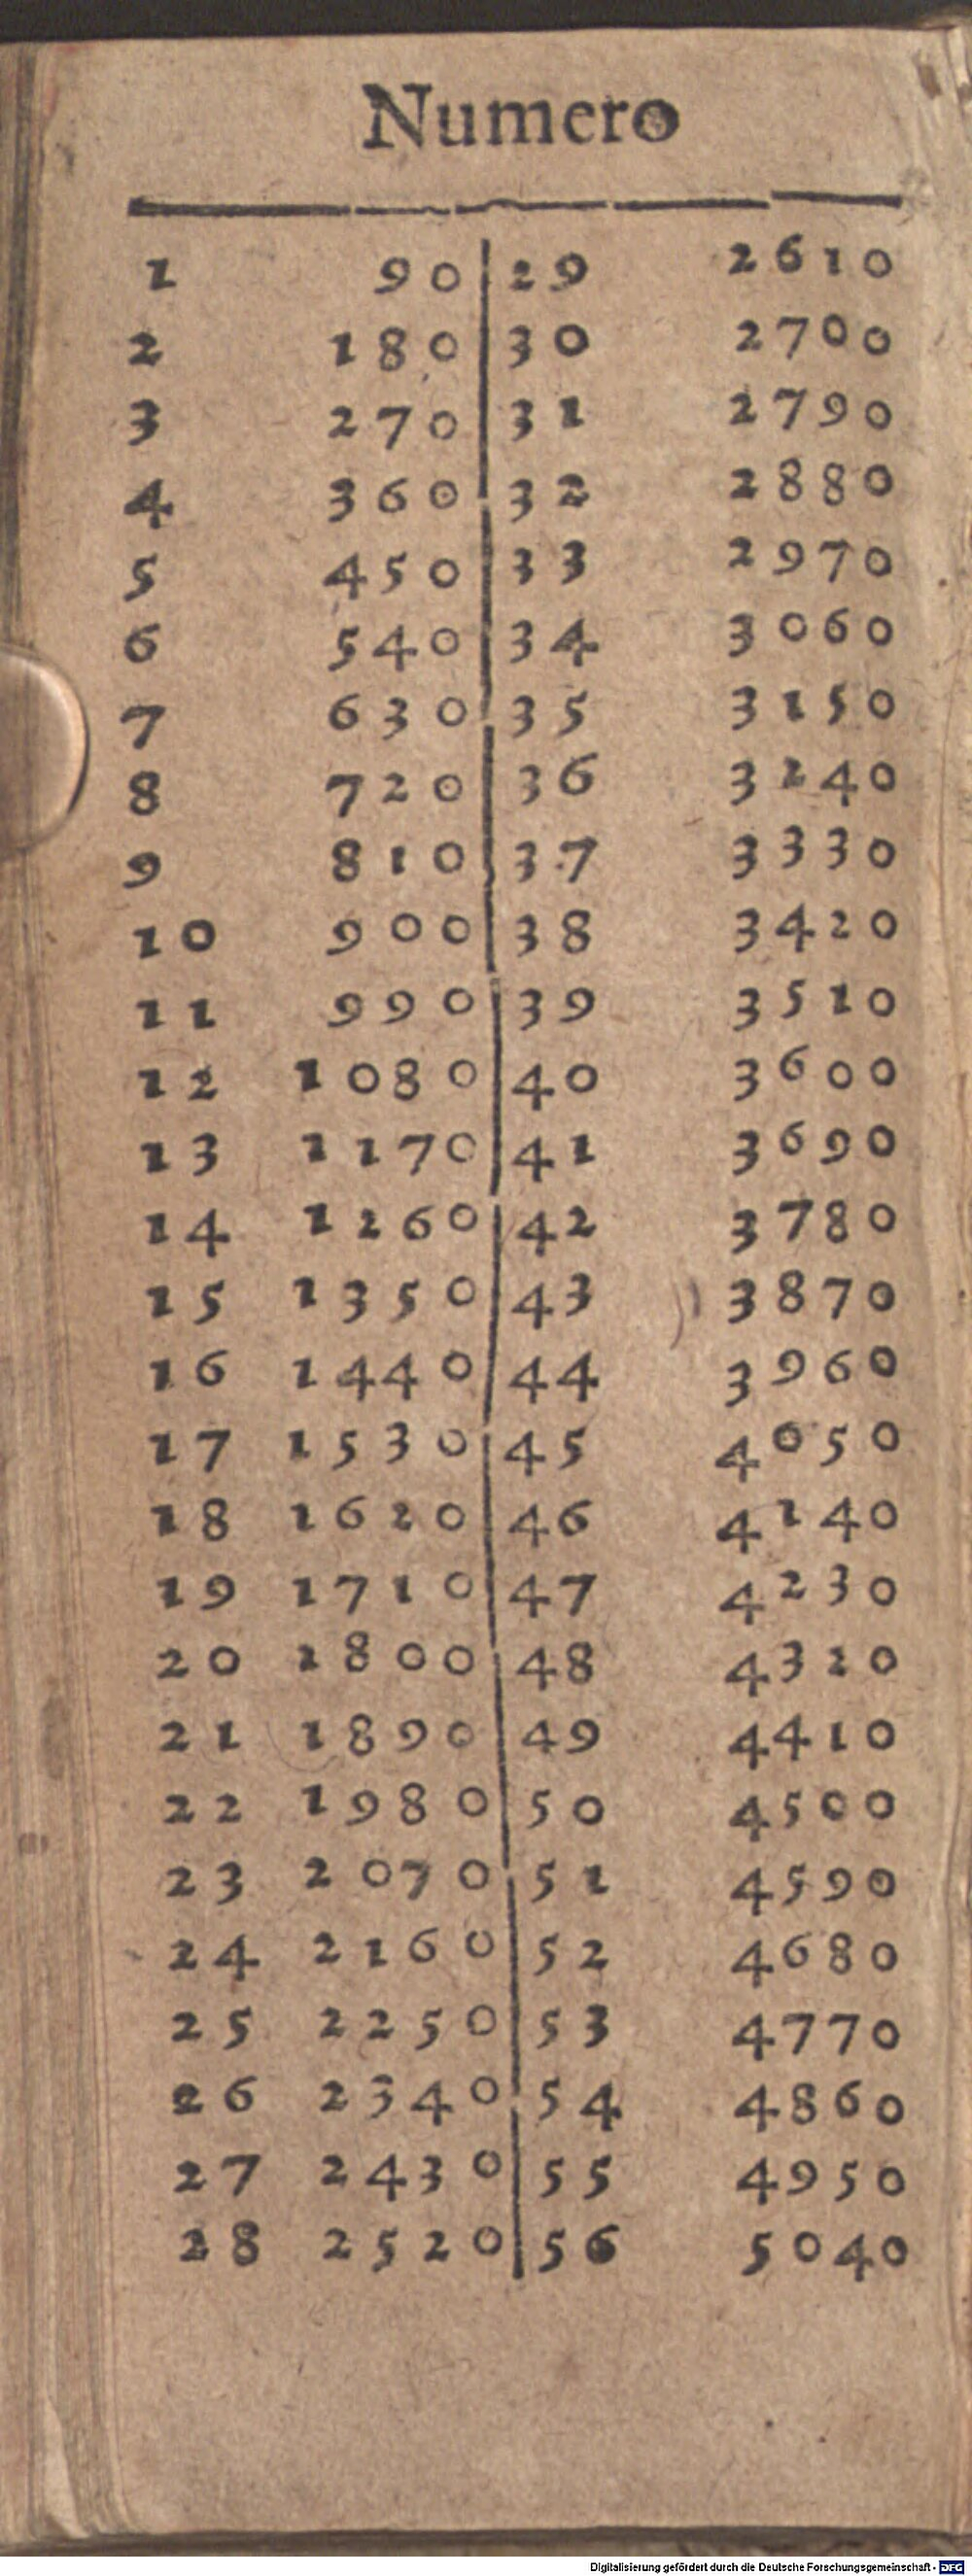 Numero
1 90 29 2610
2 180 30 2700
3 270 31 2790
4 360 32 2880
5 450 33 2970
6 540 34 3060
7 630 35 3150
8 720 36 3240
9 810 37 3330
10 900 38 3420
11 990 39 3510
12 1080 40 3600
13 1170 41 3690
14 1260 42 3780
15 1350 43 3870
16 1440 44 3960
17 1530 45 4050
18 1620 46 4140
19 1710 47 4230
20 1800 48 4320
21 1890 49 4410
22 1980 50 4500
23 2070 51 4590
24 2160 52 4680
25 2250 53 4770
26 2340 54 4860
27 2430 55 4950
28 2520 56 5040
Digitalisierung gefördert durch die Deutsche Forschungsgemeinschaft - DFG